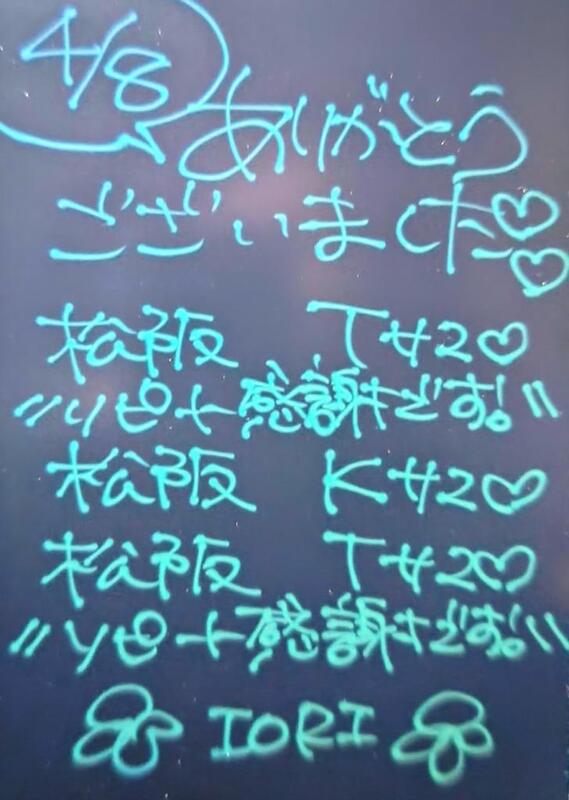 4/8
ありがとう
ございました♡♡
松阪 Tサン♡
"リピート感謝です!"
松阪 Kサン♡
松阪 Tサン♡
"リピート感謝です!"
IORI